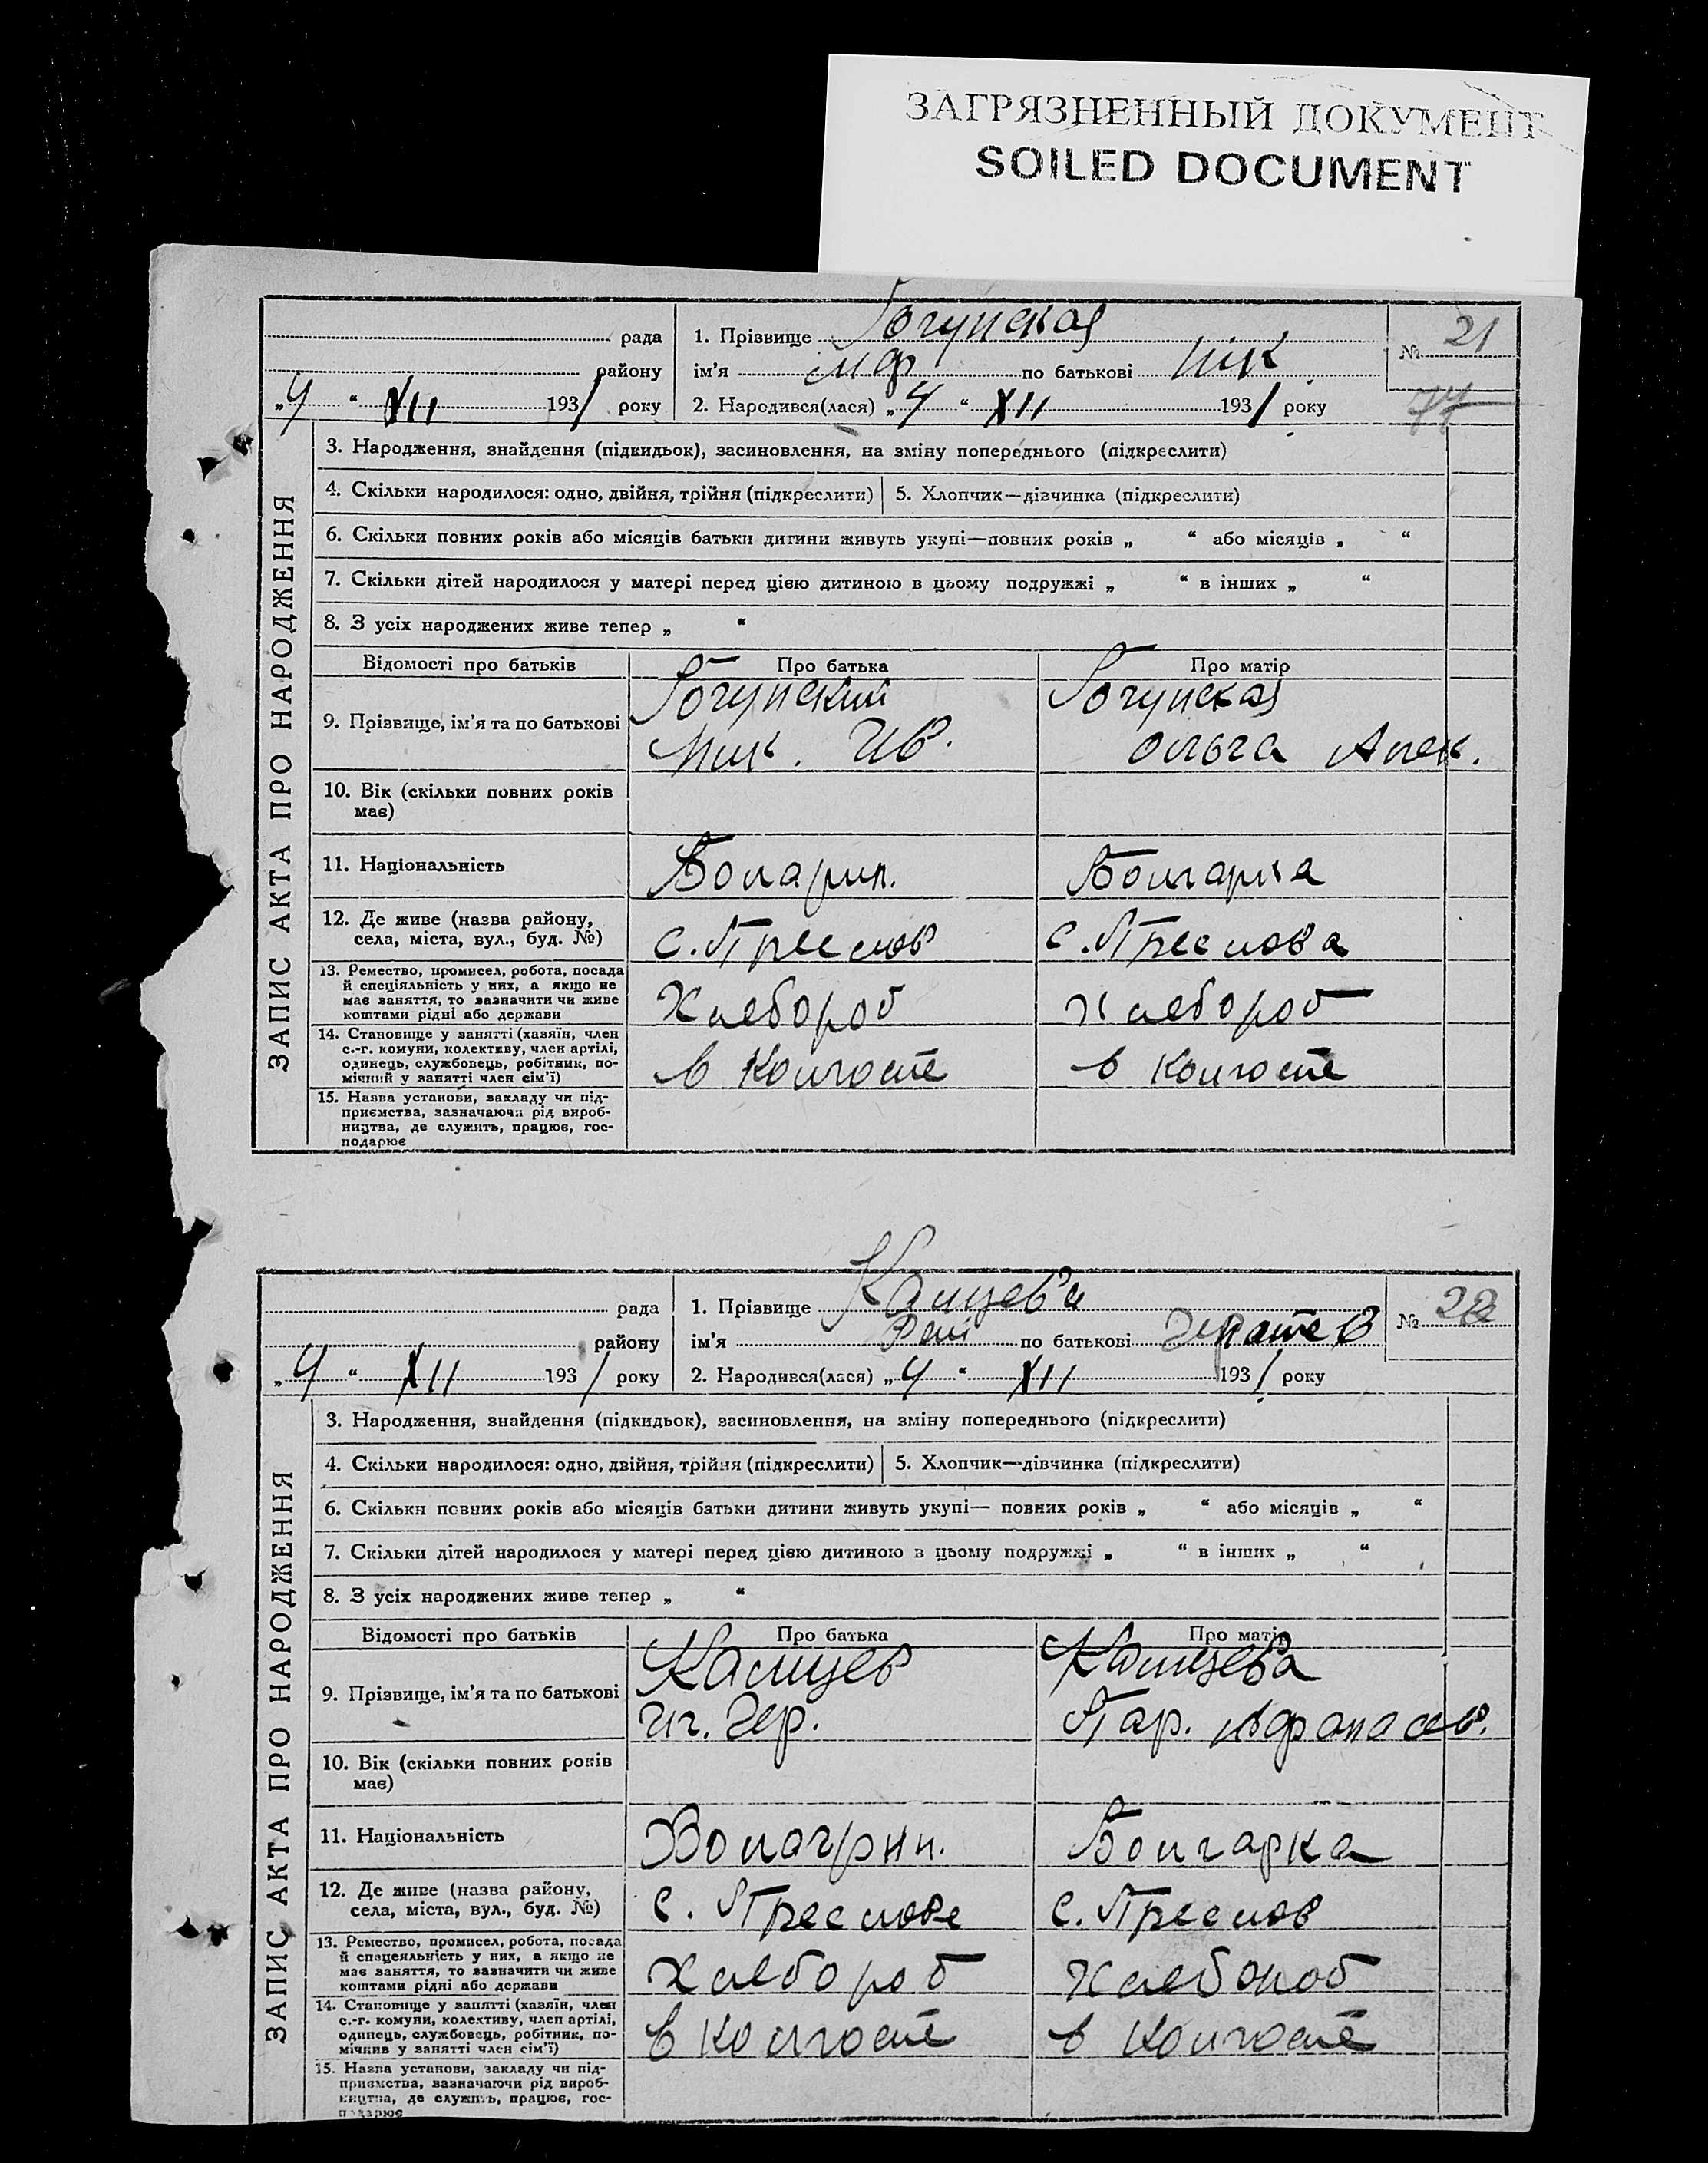 ЗАГРЯЗНЕННЫЙ ДОКУМЕНТ
SOILED DOCUMENT
рада
1. Прізвище Гогунская
№ 21
району
ім'я по батькові Ник
„4“ XII 1931 року
2. Народився(лася) „4“ XII 1931 року
ЗАПИС АКТА ПРО НАРОДЖЕННЯ
3. Народження, знайдення (підкидьок), засиновлення, на зміну попереднього (підкреслити)
4. Скільки народилося: одно, двійня, трійня (підкреслити)
5. Хлопчик—дівчинка (підкреслити)
6. Скільки повних років або місяців батьки дитини живуть укупі—повних років „ “ або місяців „ “
7. Скільки дітей народилося у матері перед цією дитиною в цьому подружжі „ “ в інших „ “
8. З усіх народжених живе тепер „ “
Відомості про батьків
Про батька
Про матір
9. Прізвище, ім'я та по батькові
Гогунский
Ник. Ив.
Гогунская
Ольга Алек.
10. Вік (скільки повних років
має)
11. Національність
Болгарка
12. Де живе (назва району,
села, міста, вул., буд. №)
с. Преслов
с. Преслова
13. Ремество, промисел, робота, посада
й спеціяльність у них, а якщо не
має заняття, то зазначити чи живе
коштами рідні або держави
Хлебороб
Хлебороб
14. Становище у занятті (хазяїн, член
с.-г. комуни, колективу, член артілі,
одинець, службовець, робітник, по-
мічний у занятті член сім'ї)
в колгоспе
в колгоспе
15. Назва установи, закладу чи під-
приємства, зазначаючи рід вироб-
ництва, де служить, працює, гос-
подарює
рада
1. Прізвище Калцева
№ 22
району
ім'я по батькові
„4“ XII 1931 року
2. Народився(лася) „4“ XII 1931 року
ЗАПИС АКТА ПРО НАРОДЖЕННЯ
3. Народження, знайдення (підкидьок), засиновлення, на зміну попереднього (підкреслити)
4. Скільки народилося: одно, двійня, трійня (підкреслити)
5. Хлопчик—дівчинка (підкреслити)
6. Скільки повних років або місяців батьки дитини живуть укупі— повних років „ “ або місяців „ “
7. Скільки дітей народилося у матері перед цією дитиною в цьому подружжі „ “ в інших „ “
8. З усіх народжених живе тепер „ “
Відомості про батьків
Про батька
Про матір
9. Прізвище, ім'я та по батькові
Калцев
Иг. Гер.
Калцева
Пар. Афанасьев.
10. Вік (скільки повних років
має)
11. Національність
Болгарка
12. Де живе (назва району,
села, міста, вул., буд. №)
с. Преслове
с. Преслов
13. Ремество, промисел, робота, посада
й спецеяльність у них, а якщо не
має заняття, то зазначити чи живе
коштами рідні або держави
Хлебороб
14. Становище у занятті (хазяїн, член
с.-г. комуни, колективу, член артілі,
одинець, службовець, робітник, по-
мічнив у занятті член сім'ї)
в колгоспе
в колгоспе
15. Назва установи, закладу чи під-
приємства, зазначаючи рід вироб-
ництва, де служить, працює, гос-
подарює